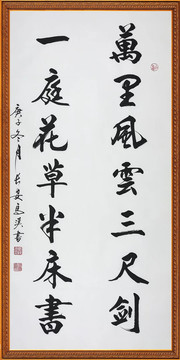 萬里風雲三尺劍
一庭花草半床書
庚子冬月長安馬洪書